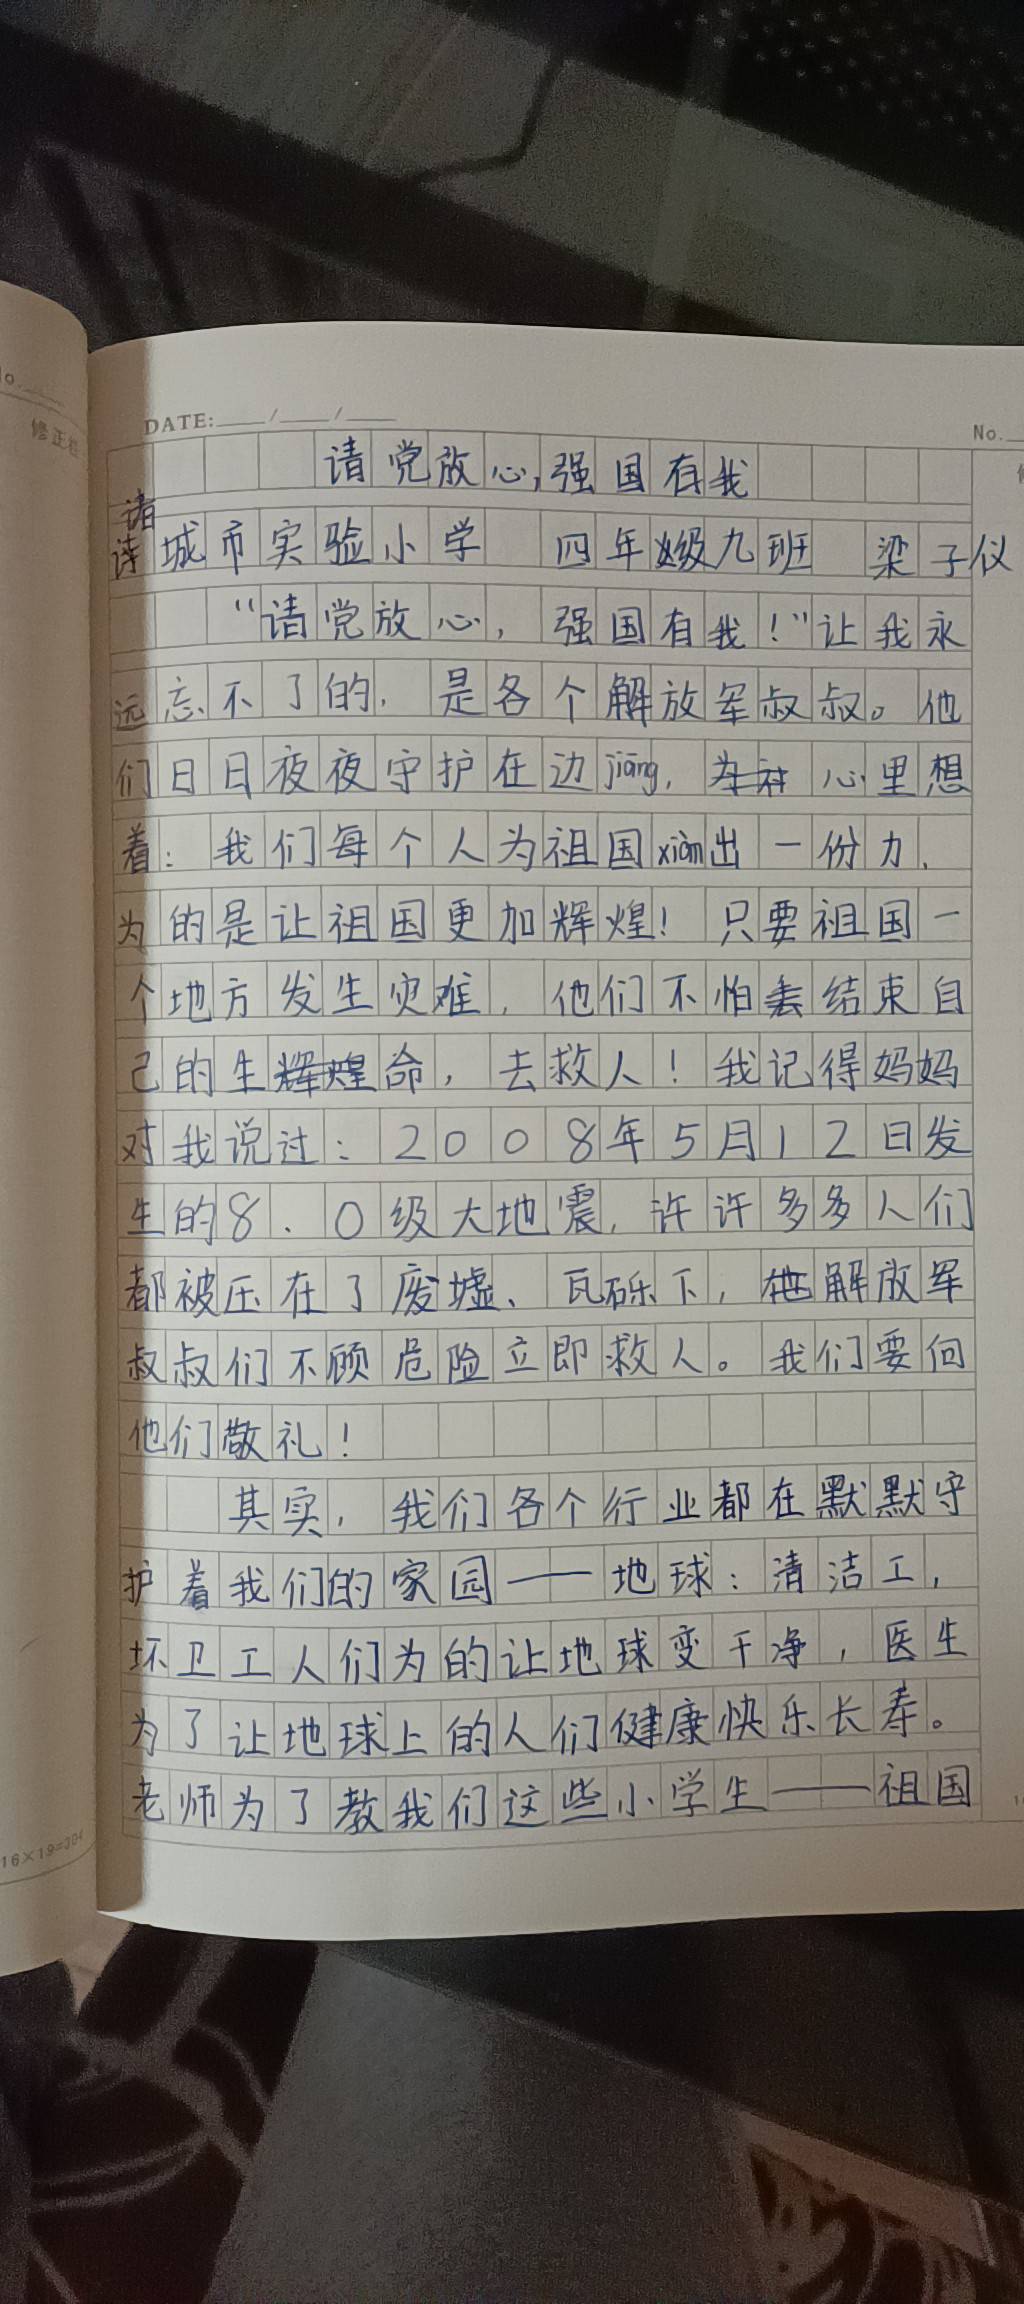 No.
修正栏
DATE: / /
No.
请党放心,强国有我
诸
诗城市实验小学 四年级九班 梁子仪
“请党放心，强国有我！”让我永
远忘不了的，是各个解放军叔叔。他
们日日夜夜守护在边jiāng，心里想
着：我们每个人为祖国xiàn出一份力，
为的是让祖国更加辉煌！只要祖国一
个地方发生灾难，他们不怕结束自
己的生命，去救人！我记得妈妈
对我说过：2008年5月12日发
生的8.0级大地震，许许多多人们
都被压在了废墟、瓦砾下，解放军
叔叔们不顾危险立即救人。我们要向
他们敬礼！
其实，我们各个行业都在默默守
护着我们的家园——地球：清洁工，
坏卫工人们为的让地球变干净，医生
为了让地球上的人们健康快乐长寿。
老师为了教我们这些小学生——祖国
16×19=304